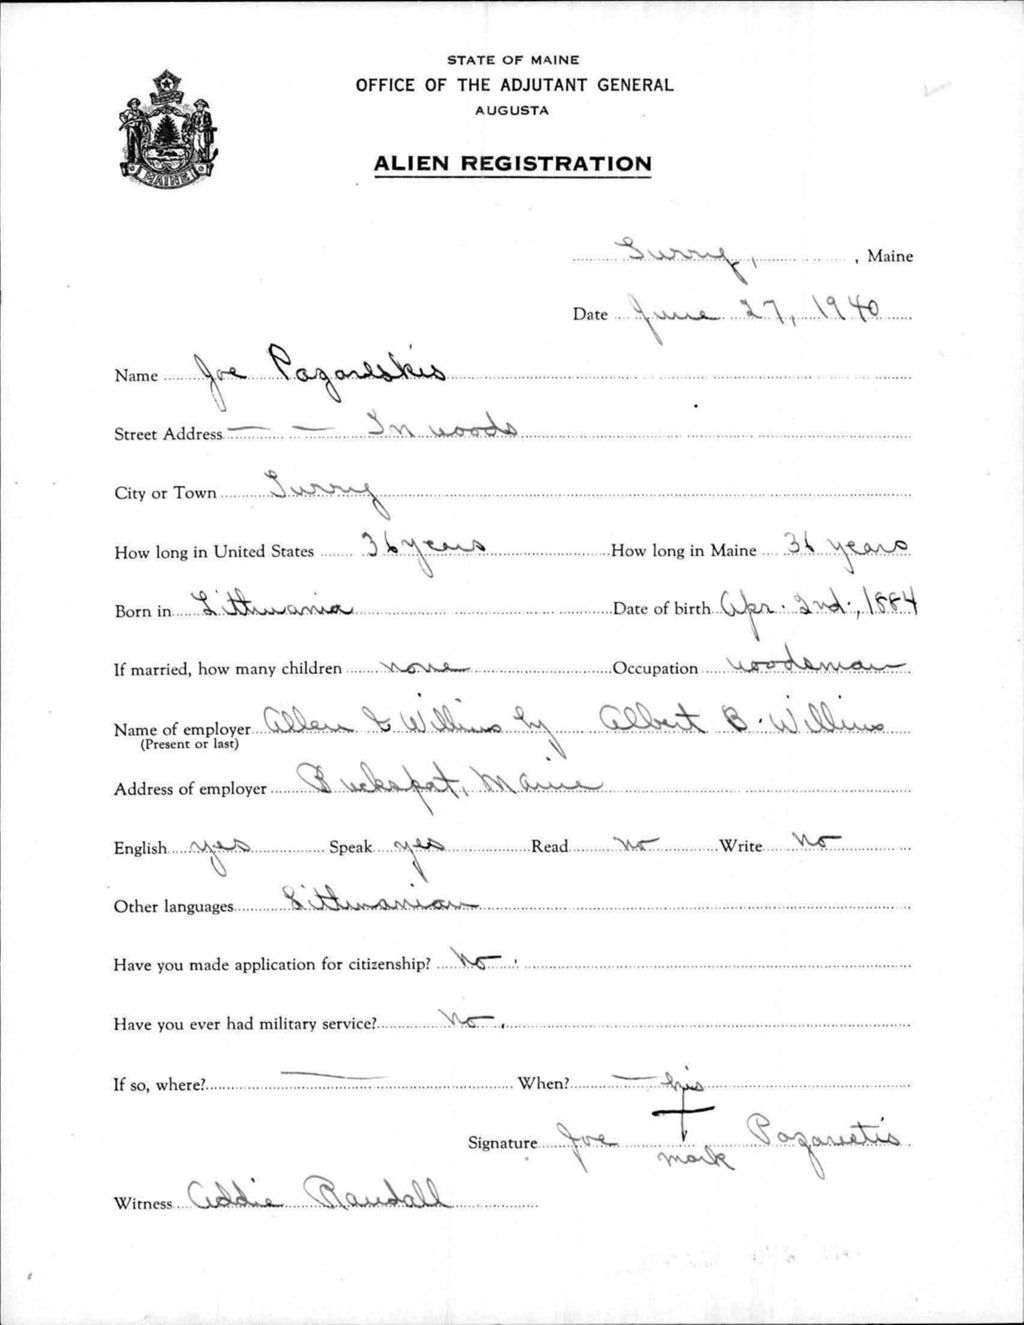 STATE OF MAINE
OFFICE OF THE ADJUTANT GENERAL
AUGUSTA
ALIEN REGISTRATION
MAINE
Surry, , Maine
Date June 27, 1940
Name Joe
Street Address — — In woods
City or Town Surry
How long in United States 36 years How long in Maine 36 years
Born in Lithuania Date of birth Apr. 2nd., 1884
If married, how many children none Occupation woodsman
Name of employer Allen & Willins by Albert B. Willins
(Present or last)
Address of employer Bucksport, Maine
English yes Speak yes Read no Write no
Other languages Lithuanian
Have you made application for citizenship? No.
Have you ever had military service? No.
If so, where? — When? —
his
Signature Joe + Pazaretis
mark
Witness Addie Randall